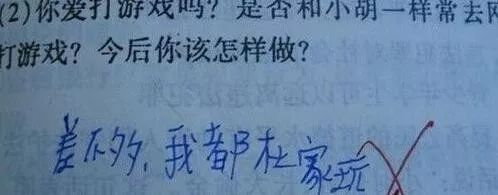 (2)你爱打游戏吗？是否和小胡一样常去网
打游戏？今后你该怎样做？
差不多，我都在家玩